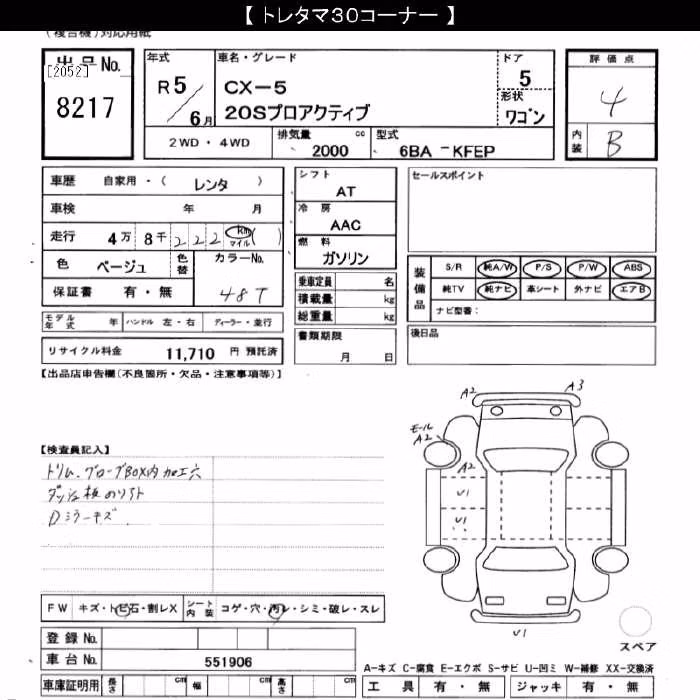 【 トレタマ30コーナー 】
(複合機)対応用紙
出品No.
[2052]
8217
年式
R 5/6月
車名・グレード
CX-5
20Sプロアクティブ
ドア
5
形状
ワゴン
評価点
4
内装
B
2WD・4WD
排気量 cc
2000
型式
6BA -KFEP
車歴 自家用・( レンタ )
車検 年 月
走行 4万 8千 222 km マイル ( )
色 ベージュ
色替
カラーNo.
48T
保証書 有・無
モデル年式 年 ハンドル 左・右 ディーラー・並行
リサイクル料金 11,710 円 預託済
シフト
AT
冷房
AAC
燃料
ガソリン
乗車定員 名
積載量 kg
総重量 kg
書類期限
月 日
セールスポイント
装備品
S/R 純A/W P/S P/W ABS
純TV 純ナビ 革シート 外ナビ エアB
ナビ型番:
後日品
【出品店申告欄(不良箇所・欠品・注意事項等)】
【検査員記入】
トリム、グローブBOX内加工穴
ダッシュ板のリフト
Dミラーキズ
A2
A3
モール
A2
A2
U1
U1
U1
スペア
FW キズ・トビ石・割レX
シート内装 コゲ・穴・汚レ・シミ・破レ・スレ
登録No.
車台No. 551906
車庫証明用 長さ cm 幅 cm 高さ cm
A-キズ C-腐食 E-エクボ S-サビ U-凹ミ W-補修 XX-交換済
工具 有・無 ジャッキ 有・無